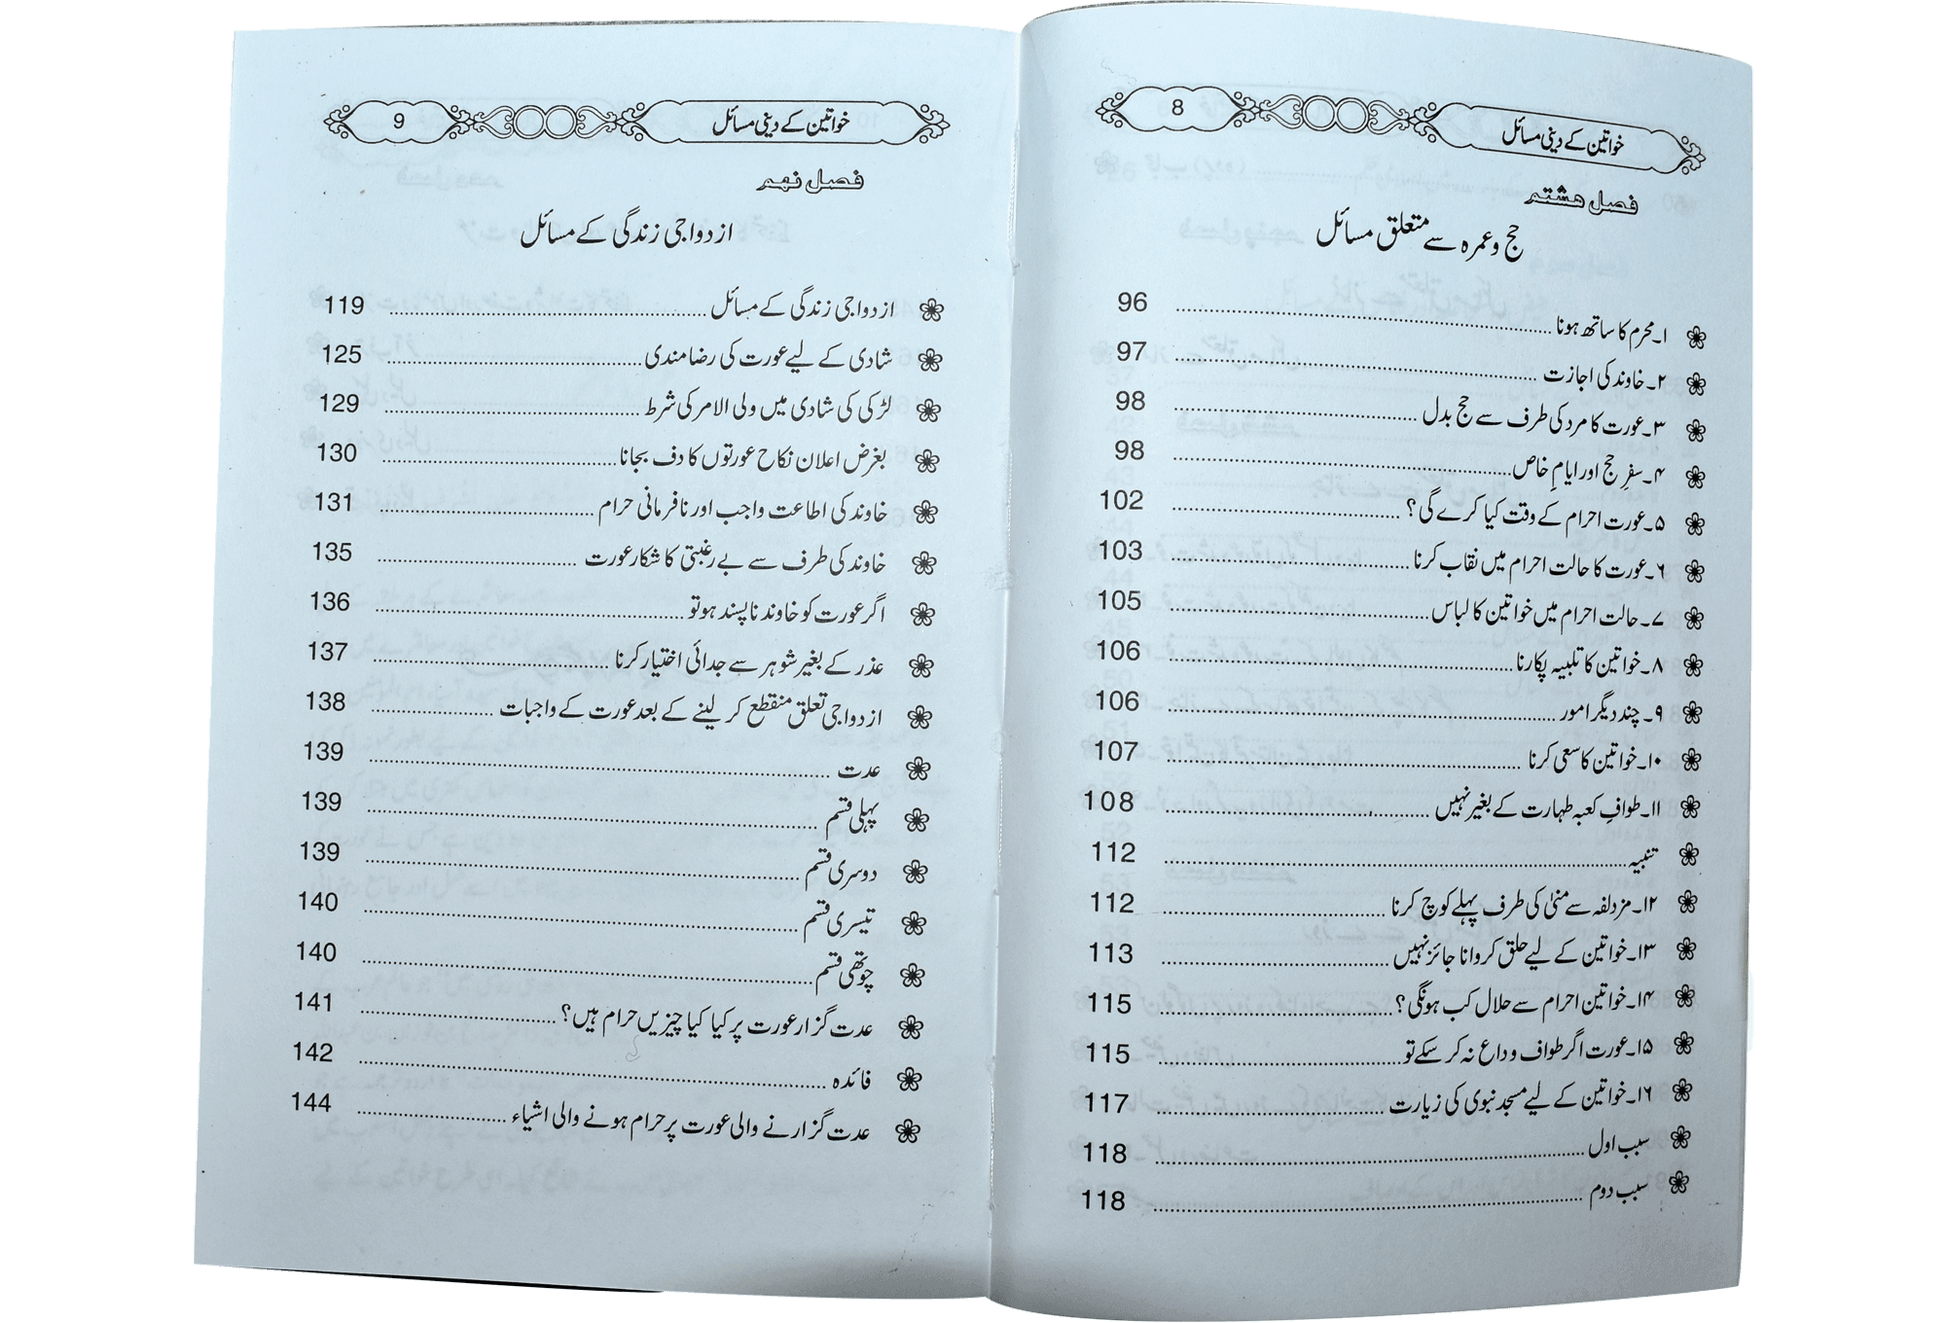 خواتین کے دینی مسائل 8
فصل ہشتم
حج و عمرہ سے متعلق مسائل
۱۔ محرم کا ساتھ ہونا 96
۲۔ خاوند کی اجازت 97
۳۔ عورت کا مرد کی طرف سے حج بدل 98
۴۔ سفرِ حج اور ایامِ خاص 98
۵۔ عورت احرام کے وقت کیا کرے گی؟ 102
۶۔ عورت کا حالت احرام میں نقاب کرنا 103
۷۔ حالت احرام میں خواتین کا لباس 105
۸۔ خواتین کا تلبیہ پکارنا 106
۹۔ چند دیگر امور 106
۱۰۔ خواتین کا سعی کرنا 107
۱۱۔ طوافِ کعبہ طہارت کے بغیر نہیں 108
تنبیہ 112
۱۲۔ مزدلفہ سے منیٰ کی طرف پہلے کوچ کرنا 112
۱۳۔ خواتین کے لیے حلق کروانا جائز نہیں 113
۱۴۔ خواتین احرام سے حلال کب ہونگی؟ 115
۱۵۔ عورت اگر طواف وداع نہ کر سکے تو 115
۱۶۔ خواتین کے لیے مسجد نبوی کی زیارت 117
سبب اول 118
سبب دوم 118
خواتین کے دینی مسائل 9
فصل نہم
ازدواجی زندگی کے مسائل
ازدواجی زندگی کے مسائل 119
شادی کے لیے عورت کی رضامندی 125
لڑکی کی شادی میں ولی الامر کی شرط 129
بغرض اعلان نکاح عورتوں کا دف بجانا 130
خاوند کی اطاعت واجب اور نافرمانی حرام 131
خاوند کی طرف سے بے رغبتی کا شکار عورت 135
اگر عورت کو خاوند ناپسند ہو تو 136
عذر کے بغیر شوہر سے جدائی اختیار کرنا 137
ازدواجی تعلق منقطع کر لینے کے بعد عورت کے واجبات 138
عدت 139
پہلی قسم 139
دوسری قسم 139
تیسری قسم 140
چوتھی قسم 140
عدت گزار عورت پر کیا کیا چیزیں حرام ہیں؟ 141
فائدہ 142
عدت گزارنے والی عورت پر حرام ہونے والی اشیاء 144